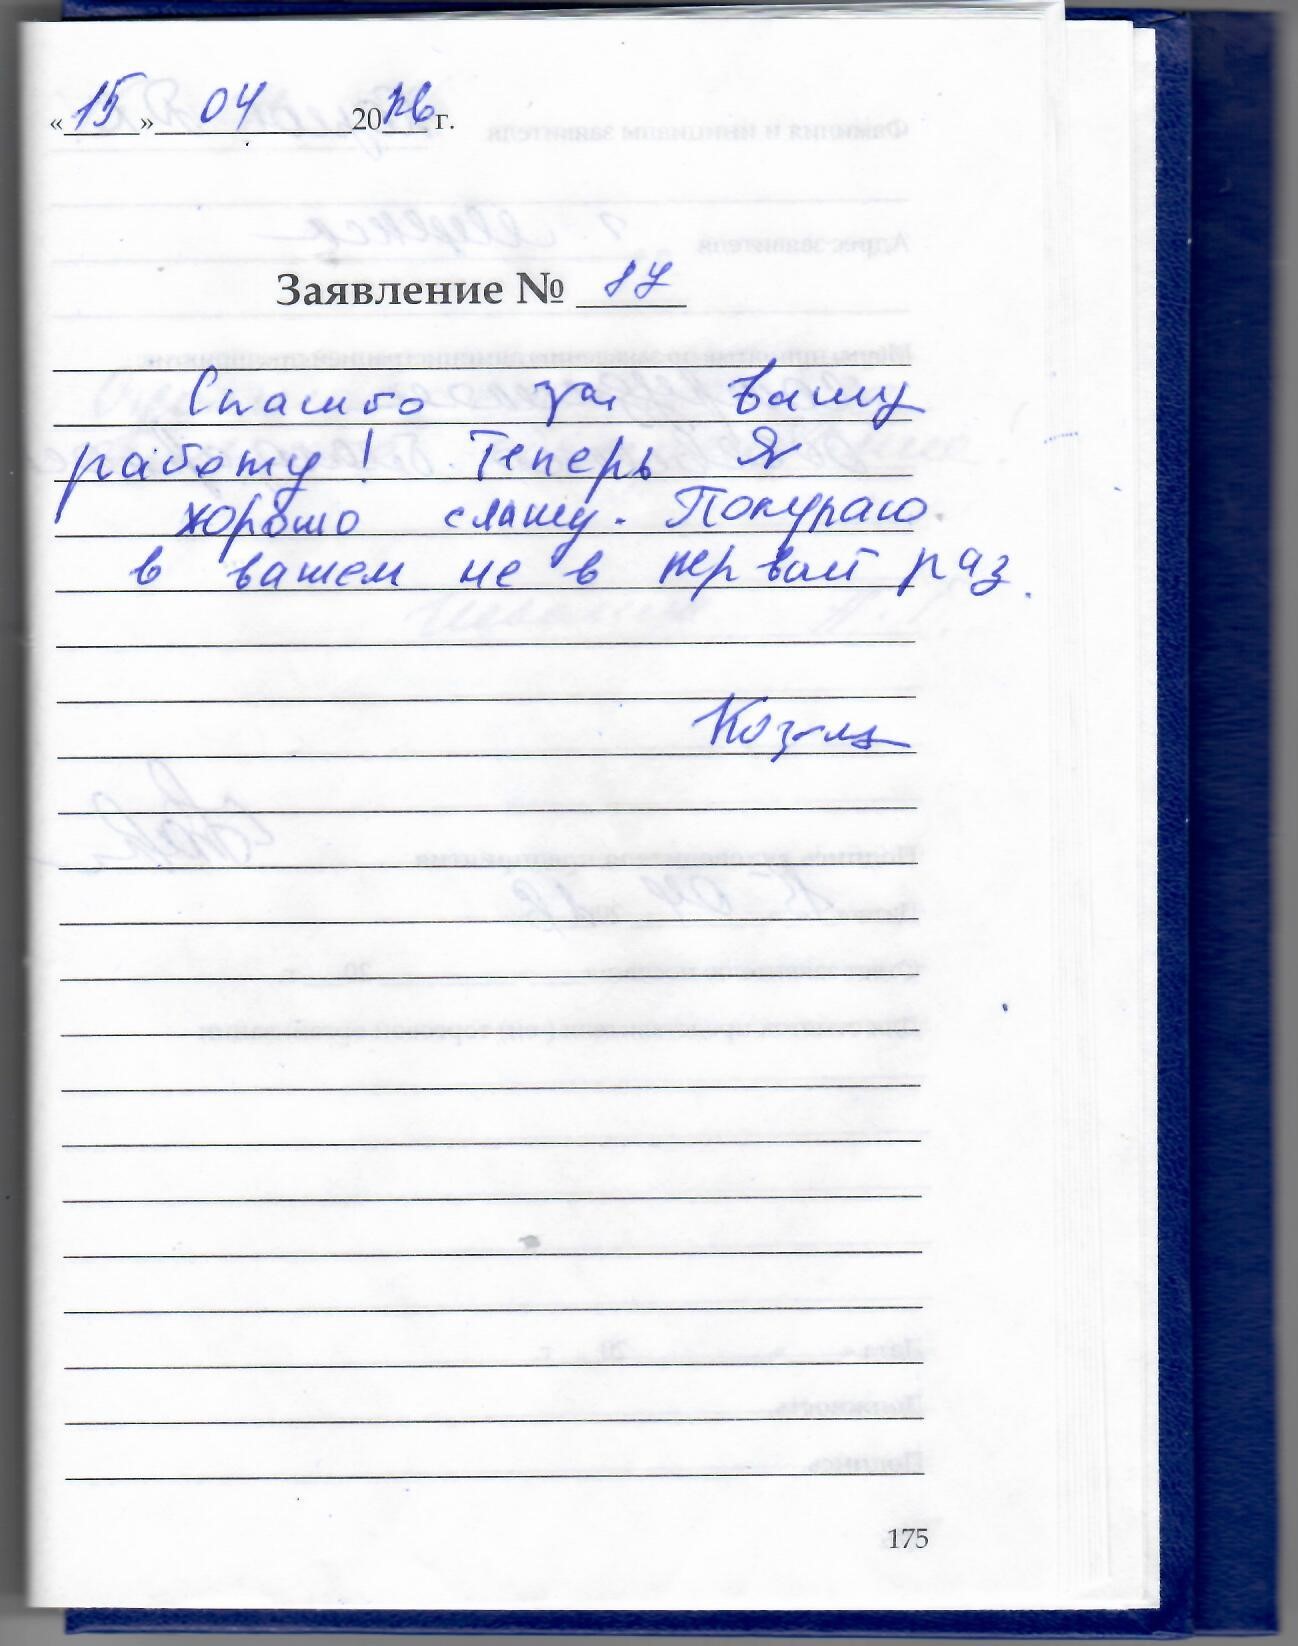 «15» 04 2016 г.
Заявление № 87
Спасибо за вашу
работу! Теперь я
хорошо слышу. Покупаю
в вашем не в первый раз.
175